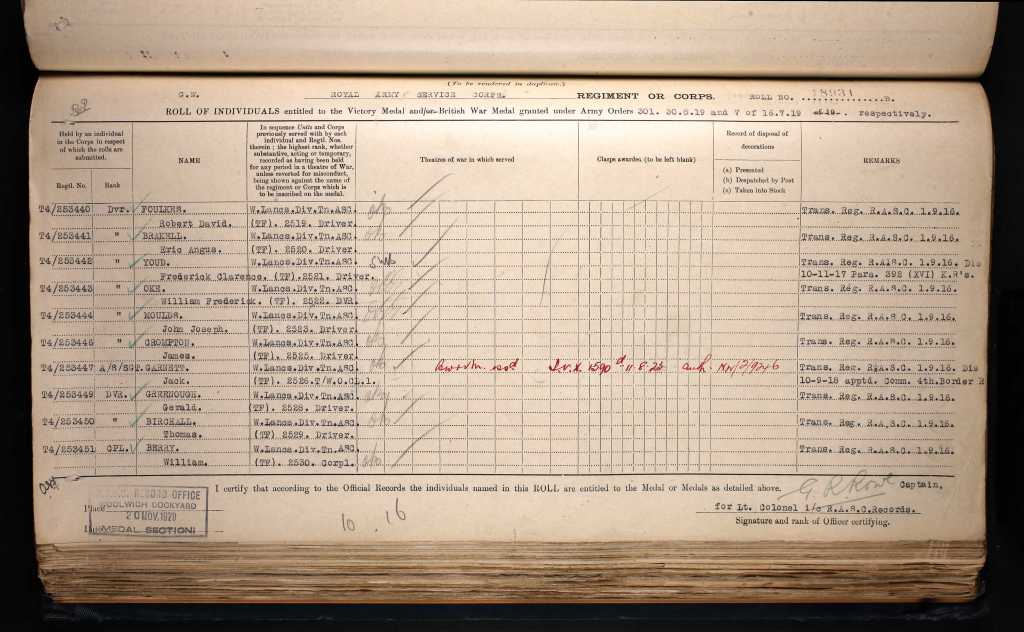 (To be rendered in duplicate.)
G.W. ROYAL ARMY SERVICE CORPS. REGIMENT OR CORPS. ROLL NO. 18931 B.
ROLL OF INDIVIDUALS entitled to the Victory Medal and/or British War Medal granted under Army Orders 301. 30.8.19 and V of 16.7.19 respectively.
Held by an individual in the Corps in respect of which the rolls are submitted.
Regtl. No. Rank
NAME
In sequence Units and Corps previously served with by each individual and Regtl. Nos. therein; the highest rank, whether substantive, acting or temporary, recorded as having been held for any period in a theatre of War, unless reverted for misconduct, being shown against the name of the regiment or Corps which is to be inscribed on the medal.
Theatres of war in which served
Clasps awarded (to be left blank)
Record of disposal of decorations
(a) Presented
(b) Despatched by Post
(c) Taken into Stock
REMARKS
T4/253440 Dvr. FOULKES. W.Lancs.Div.Tn.ASC. Trans. Reg. R.A.S.C. 1.9.16.
Robert David. (TF). 2519. Driver.
T4/253441 " BRAKELL. W.Lancs.Div.Tn.ASC. Trans. Reg. R.A.S.C. 1.9.16.
Eric Angus. (TF). 2520. Driver.
T4/253442 " YOUD. W.Lancs.Div.Tn.ASC. Trans. Reg. R.A.S.C. 1.9.16. Dis
Frederick Clarence. (TF).2521. Driver. 10-11-17 Para. 392 (XVI) K.R's.
T4/253443 " OKE. W.Lancs.Div.Tn.ASC. Trans. Reg. R.A.S.C. 1.9.16.
William Frederick. (TF). 2522. DVR.
T4/253444 " MOULDS. W.Lancs.Div.Tn.ASC. Trans. Reg. R.A.S C. 1.9.16.
John Joseph. (TF). 2523. Driver
T4/253446 " CROMPTON. W.Lancs.Div.Tn.ASC. Trans. Reg. R.A.S.C. 1.9.16.
James. (TF). 2525. Driver
T4/253447 A/S/SGT. GARNETT. W.Lancs.Div.Tn.ASC. 11.8.22 Auth. Trans. Reg. R.A.S.C. 1.9.16. Dis
Jack. (TF). 2526.T/W.O.CL.1. 10-9-18 apptd. Comm. 4th.Border R
T4/253449 DVR. GREENOUGH. W.Lancs.Div.Tn.ASC. Trans. Reg. R.A.S.C. 1.9.16.
Gerald. (TF). 2528. Driver.
T4/253450 " BIRCHALL. W.Lancs.Div.Tn.ASC. Trans. Reg. R.A.S.C. 1.9.16.
Thomas. (TF) 2529. Driver.
T4/253451 CPL. BERRY. W.Lancs.Div.Tn.ASC. Trans. Reg. R.A.S.C. 1.9.16.
William. (TF). 2530. Corpl.
I certify that according to the Official Records the individuals named in this ROLL are entitled to the Medal or Medals as detailed above.
Captain,
for Lt. Colonel i/c R.A.S.C.Records.
Signature and rank of Officer certifying.
Place
RECORD OFFICE
WOOLWICH DOCKYARD
20 NOV. 1920
(MEDAL SECTION)
10 . 16